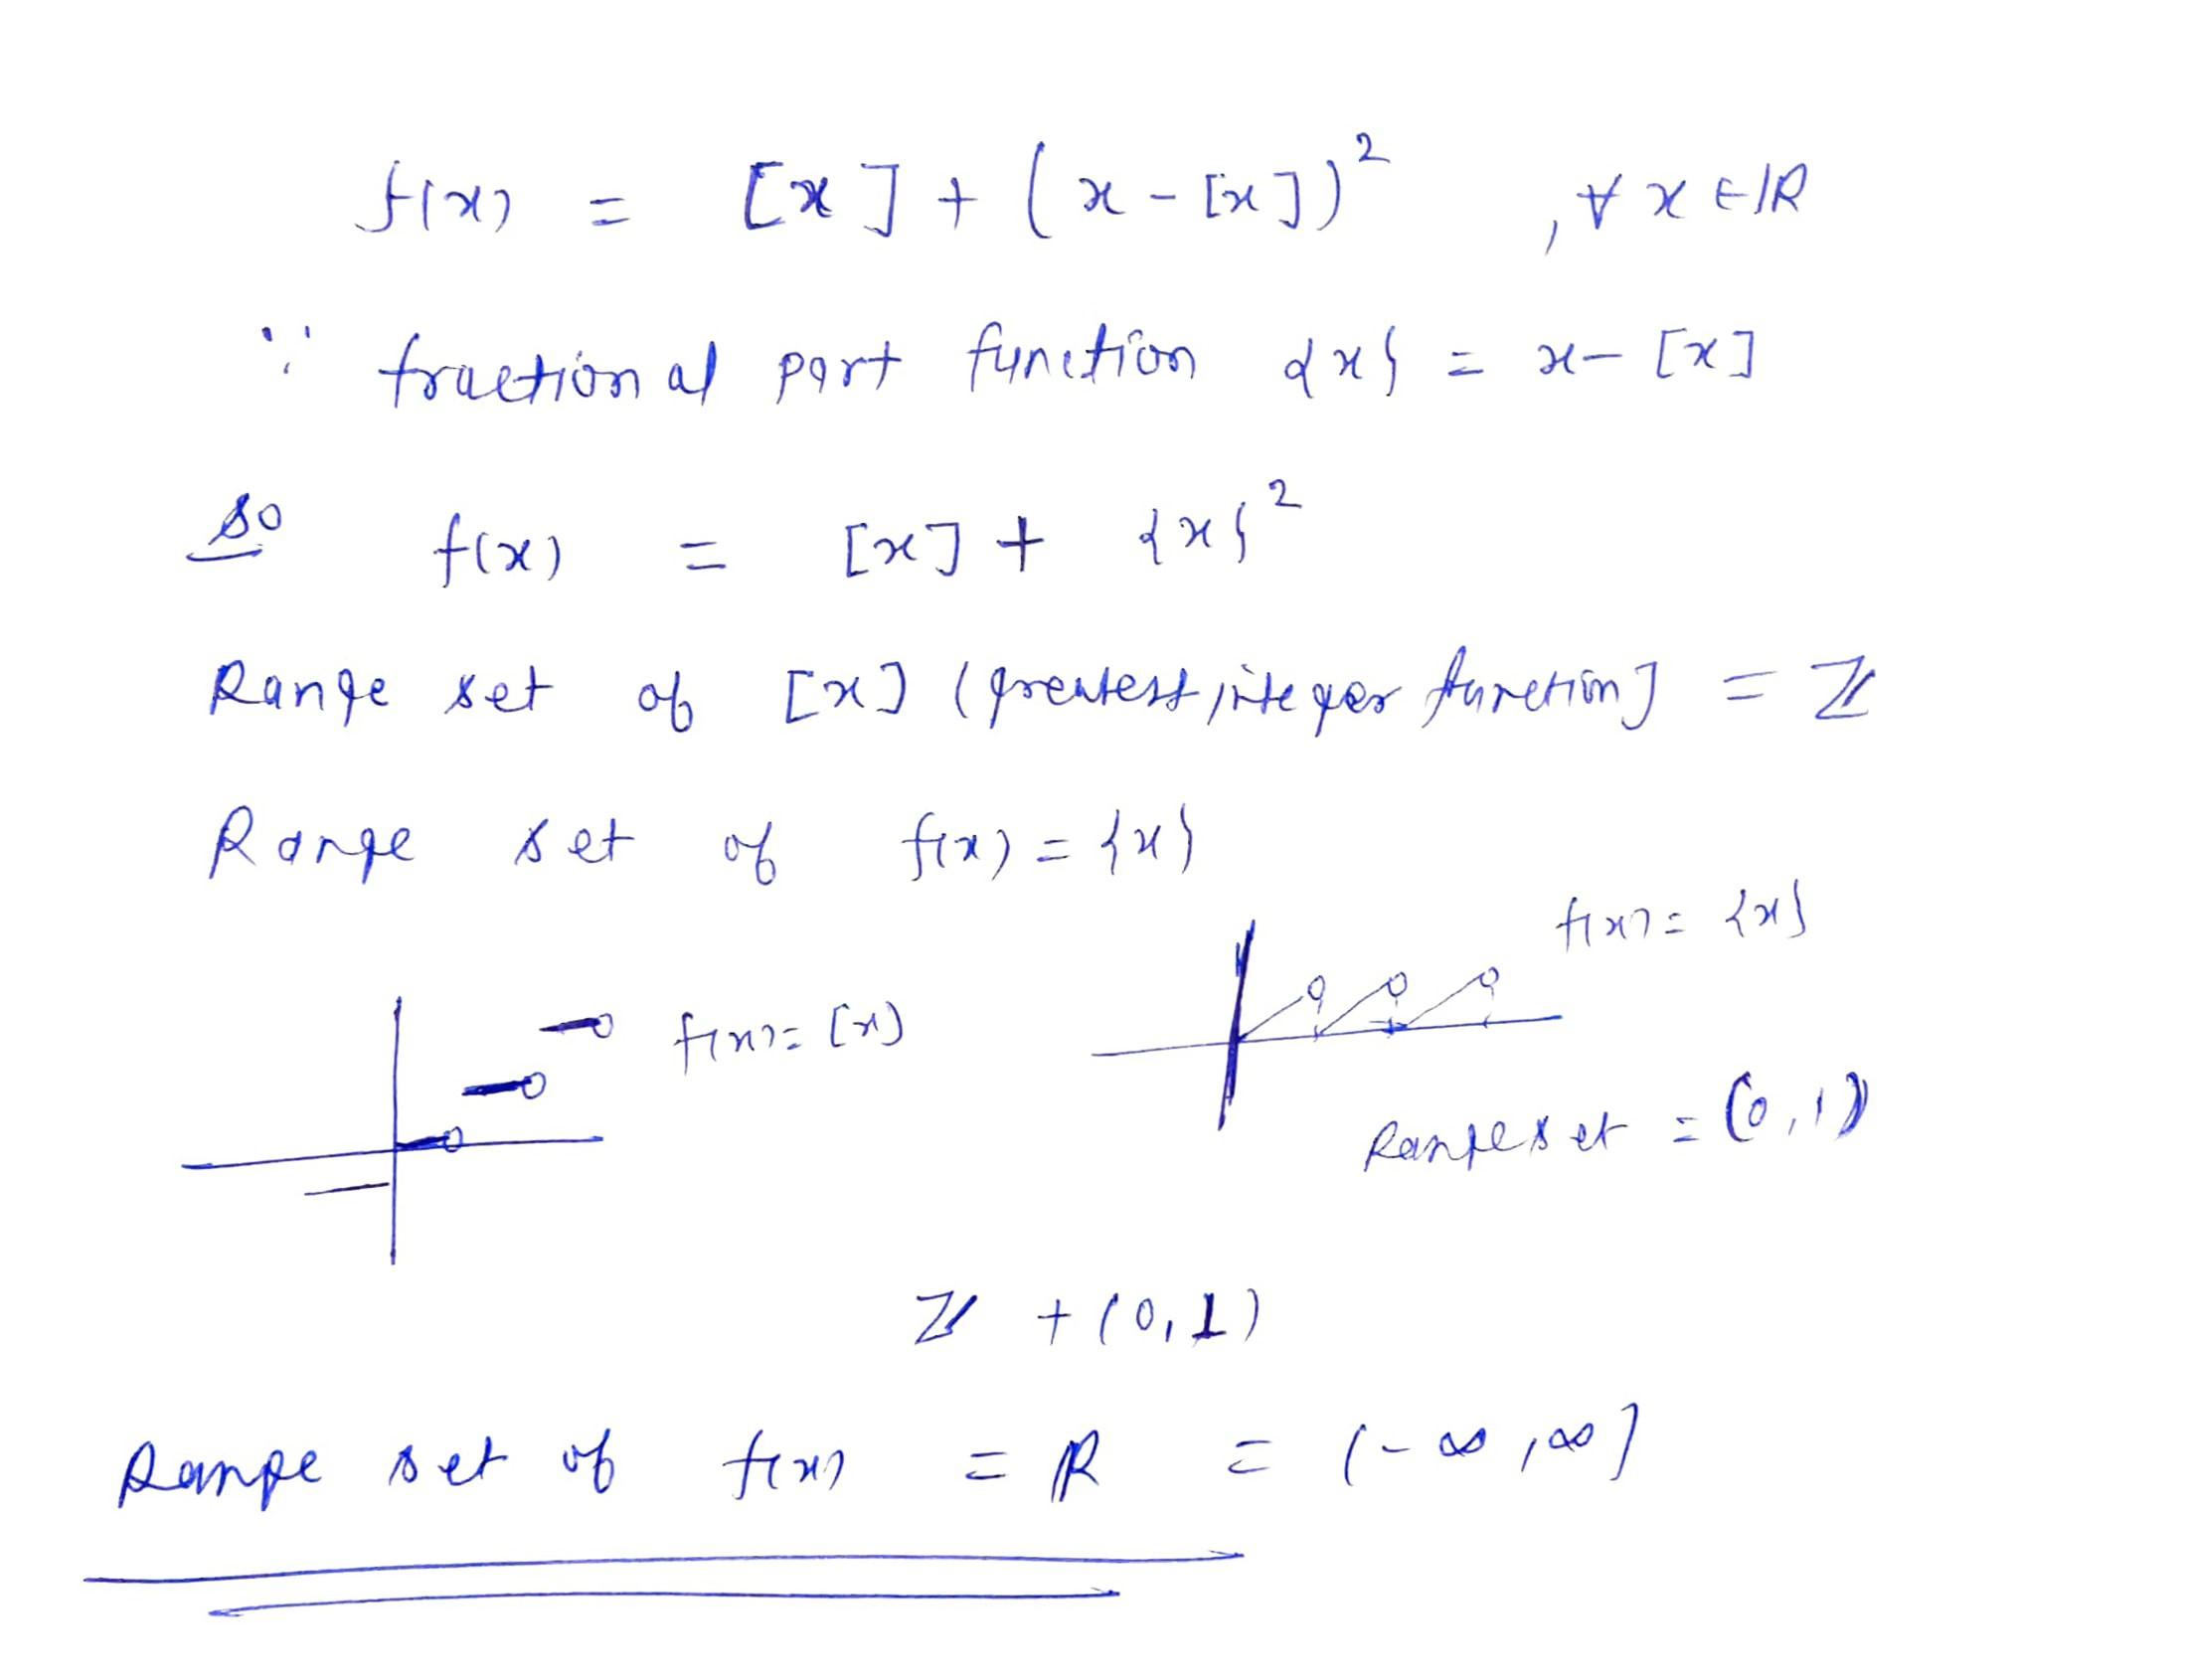 f(x) = [x] + (x - [x])² , ∀ x ∈ ℝ
∵ fractional part function {x} = x - [x]
So f(x) = [x] + {x}²
Range set of [x] (greatest integer function] = ℤ
Range set of f(x) = {x}
f(x) = {x}
f(x) = [x]
Range set = (0, 1)
ℤ + (0, 1)
Range set of f(x) = ℝ = (-∞, ∞]